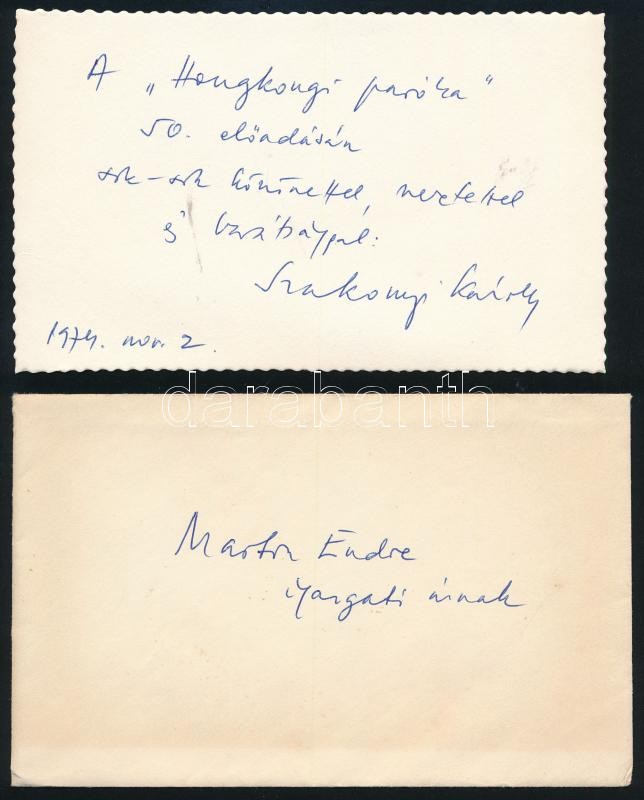 A „Hongkongi paróka"
50. előadásán
sok-sok köszönettel, szeretettel
és barátsággal:
Szakonyi Károly
1974. nov. 2.
darabanth
Marton Endre
igazgató úrnak